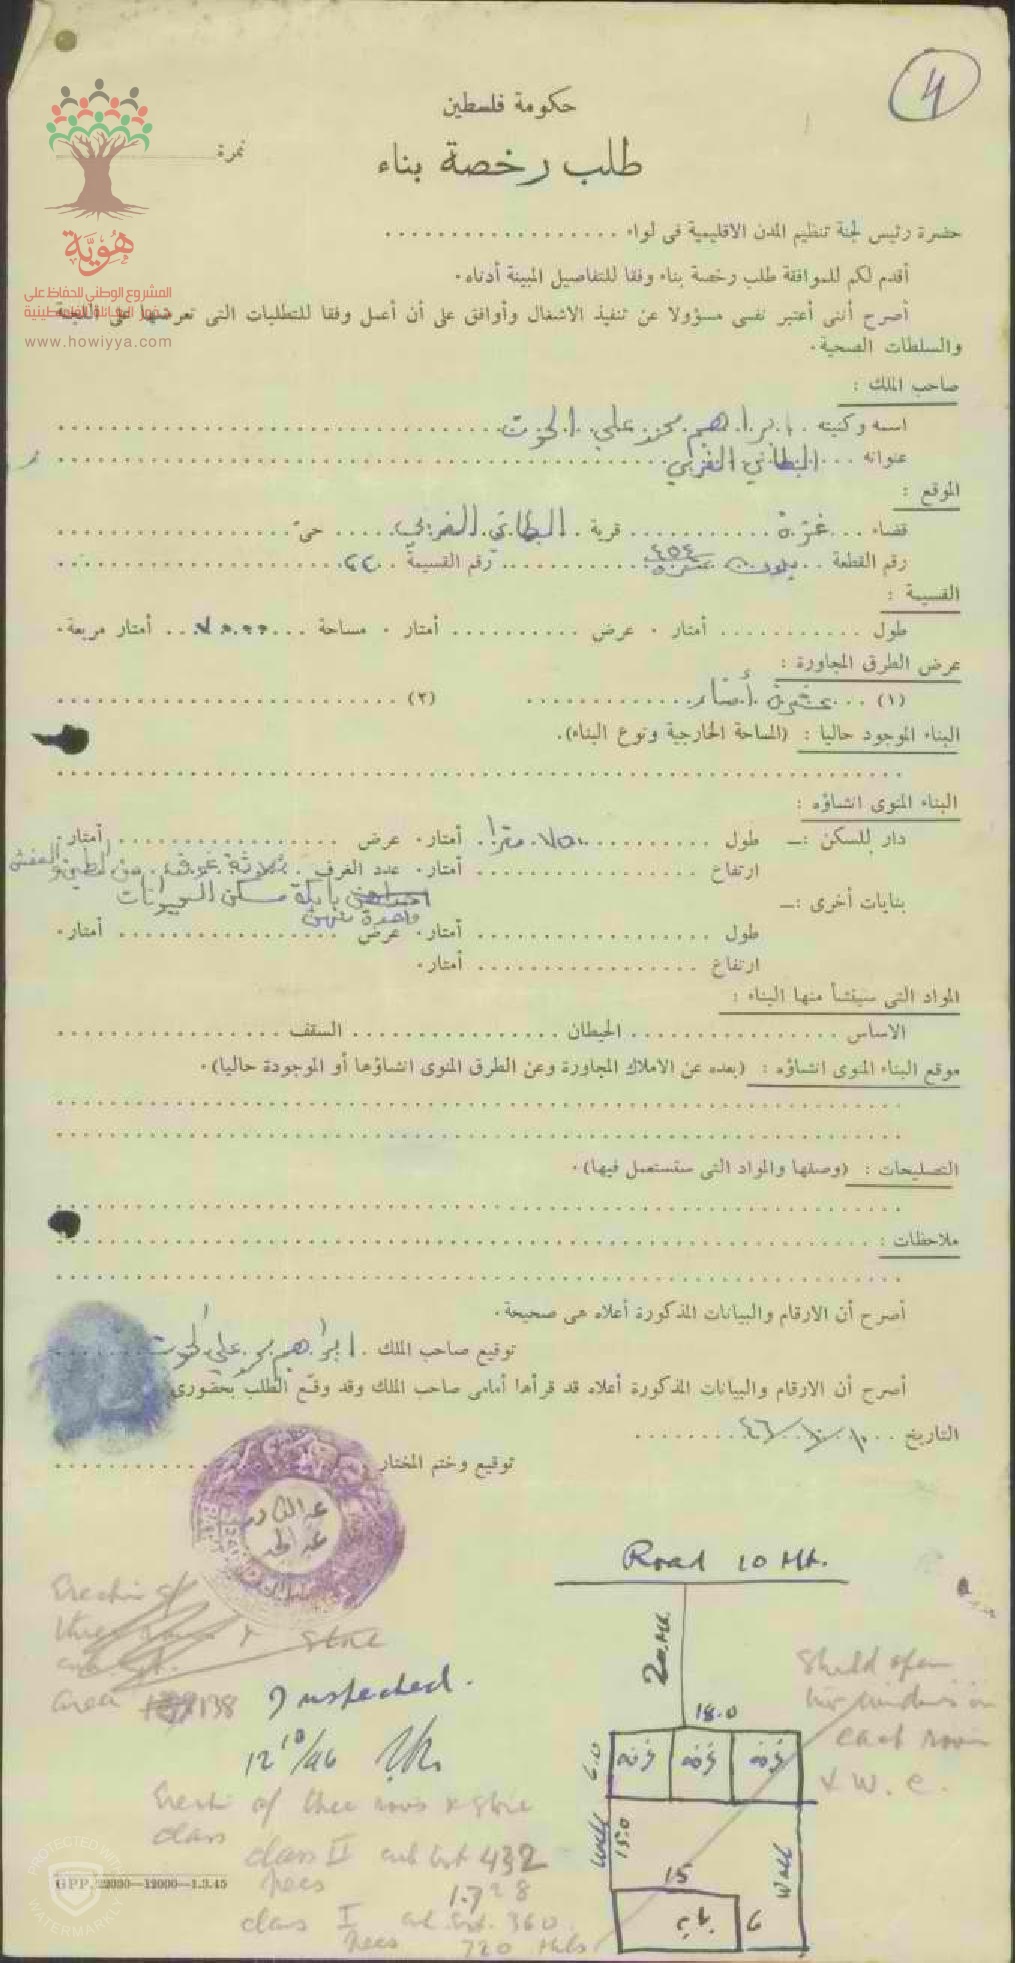 4
حكومة فلسطين
طلب رخصة بناء
نمرة
هُويَّة
المشروع الوطني للحفاظ على
جذور العائلة الفلسطينية
www.howiyya.com
حضرة رئيس لجنة تنظيم المدن الاقليمية فى لواء
أقدم لكم للموافقة طلب رخصة بناء وفقا للتفاصيل المبينة أدناه.
أصرح أننى أعتبر نفسى مسؤولا عن تنفيذ الاشغال وأوافق على أن أعمل وفقا للتطلبات التى تعرضها على اللجنة
والسلطات الصحية.
صاحب الملك :
اسمه وكنيته ابراهيم محمد علي الحوت
عنوانه البطاني الغربي
الموقع :
قضاء غزة قرية البطاني الغربي حىّ
رقم القطعة رقم القسيمة ٢٢
القسيمة :
طول أمتار . عرض أمتار . مساحة أمتار مربعة.
عرض الطرق المجاورة :
(١) عشرة أمتار (٢)
البناء الموجود حاليا : (المساحة الخارجية ونوع البناء).
البناء المنوى انشاؤه :
دار للسكن :ــ طول أمتار. عرض أمتار.
ارتفاع أمتار. عدد الغرف ثلاثة غرف من الطين
بنايات أخرى :ــ بايكة مسكن الحيوانات
طول أمتار. عرض أمتار.
ارتفاع أمتار.
المواد التى سينشأ منها البناء :
الاساس الحيطان السقف
موقع البناء المنوى انشاؤه : (بعده عن الاملاك المجاورة وعن الطرق المنوى انشاؤها أو الموجودة حاليا).
التصليحات : (وصفها والمواد التى ستستعمل فيها).
ملاحظات :
أصرح أن الارقام والبيانات المذكورة أعلاه هى صحيحة.
توقيع صاحب الملك ابراهيم محمد علي الحوت
أصرح أن الارقام والبيانات المذكورة أعلاه قد قرأها أمامى صاحب الملك وقد وقّع الطلب بحضورى
التاريخ ١٠/١٠/٤٦
توقيع وختم المختار
Road 10 Mt.
20 Mt.
18.0
غرفة غرفة غرفة
6.0
Wall
15.0
Wall
15
بايكة
6
Erection of
three rooms & store
area 138
Inspected.
12 10/46
Should open
two windows in
each room
& W.C.
Erecti of three rooms & store
class
class II cub cont 432
fees 1.728
class I cub cont. 360
fees 720 Mils
GPP. 22030—12000—1.3.45
PROTECTED WITH
WATERMARKLY